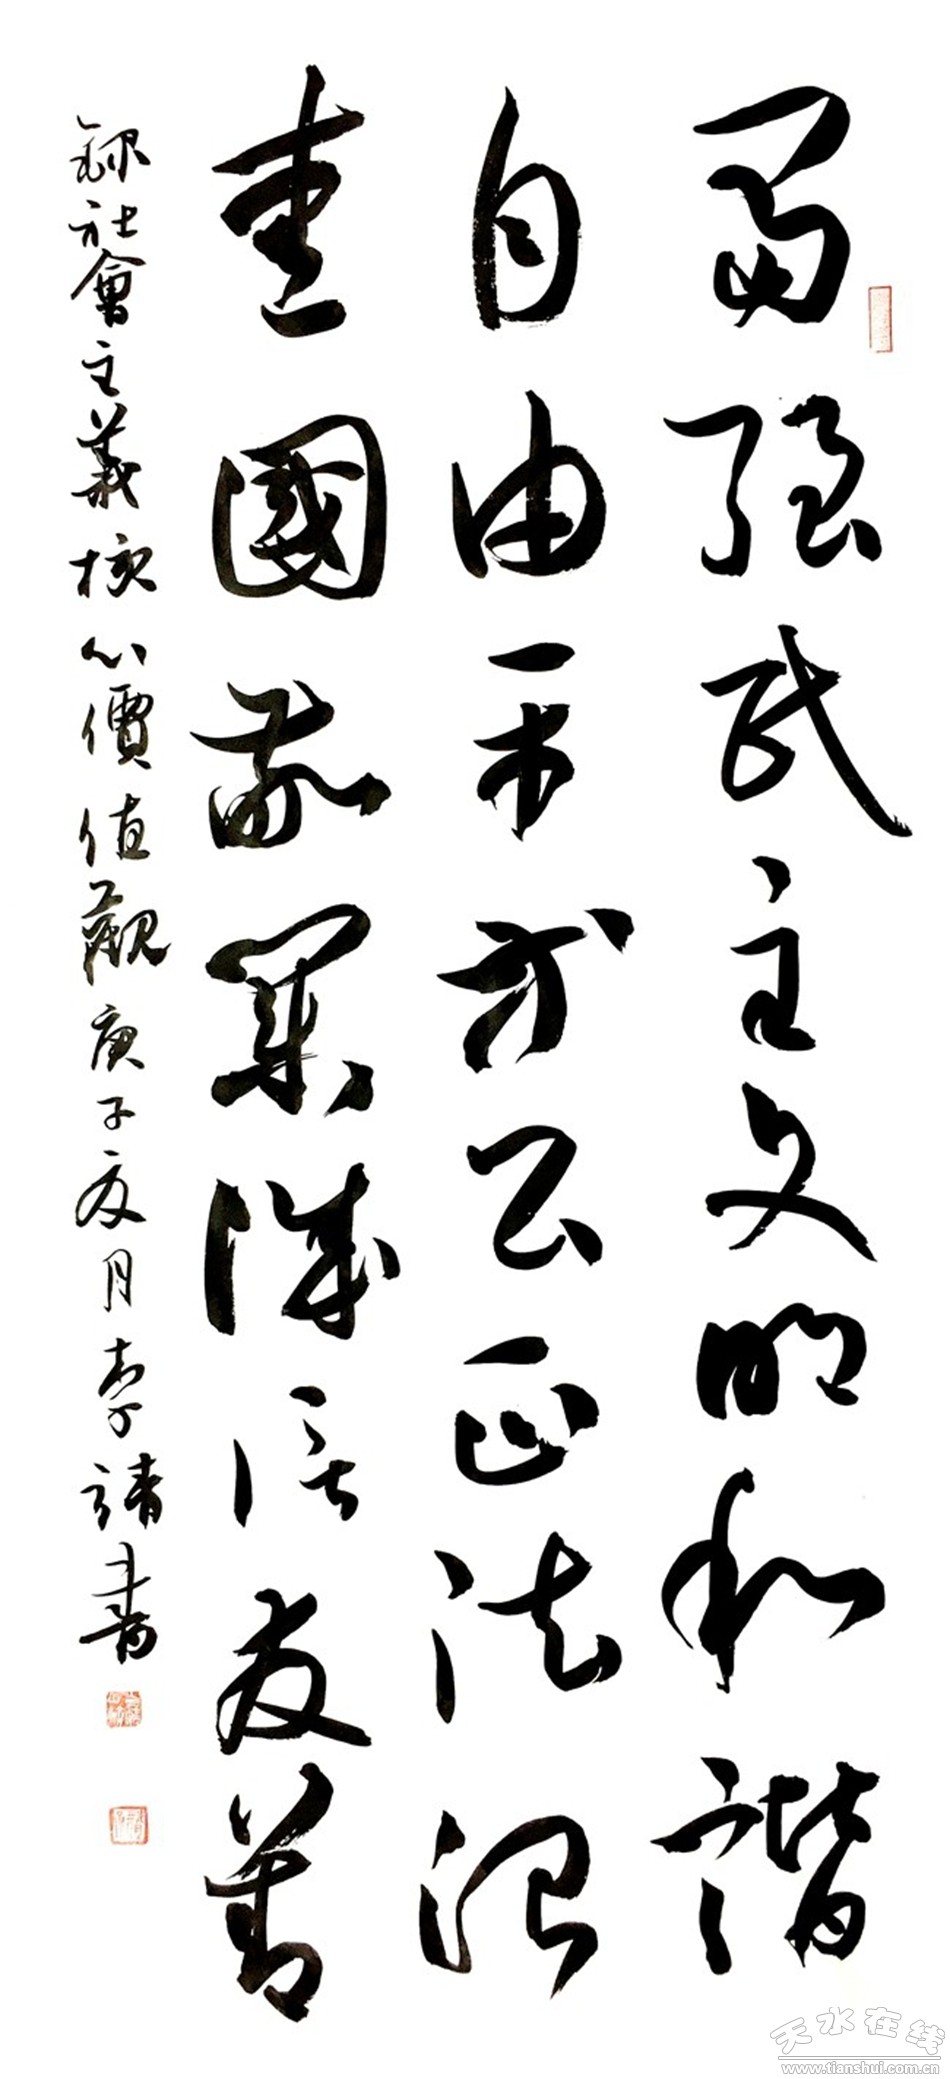 富強民主文明和諧
自由平等公正法治
愛國敬業誠信友善
錄社會主義核心價值觀庚子夏月李靖書
天水在线
www.tianshui.com.cn